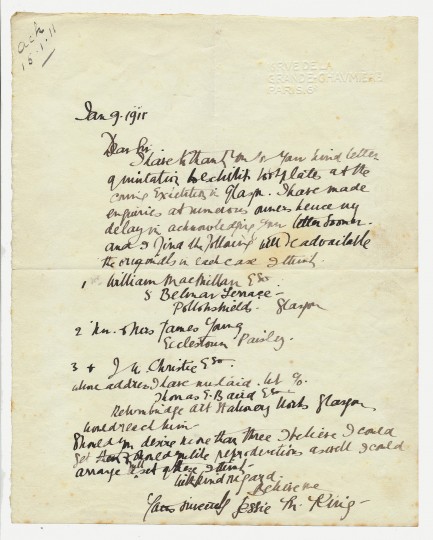 ack
16.1.11
RUE DE LA
GRANDE CHAUMIERE
PARIS. 6e
Jan 9. 1911
Dear Sir
I have to thank you for your kind letter
& invitation to exhibit bookplates at the
coming Exhibition in Glasgow. I have made
enquiries at numerous owners hence my
delay in acknowledging your letter sooner.
and I find the following will be available
the originals in each case I think.
1 William MacMillan Esq
8 Belmar Terrace -
Pollokshields. Glasgow
2 Mr. & Mrs James Young
Ecclestoun Paisley.
3 & J W. Christie Esq.
whose address I have mislaid. but c/o.
Thomas G. Baird Esq
Kelvinbridge Art Stationery Works Glasgow
would reach him -
Should you desire more than three I believe I could
get reproductions as well I could
arrange a set of these I think -
With kind regard.
Believe me
Yours sincerely Jessie M. King -